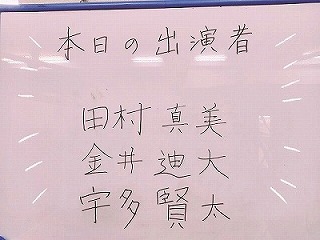 本日の出演者
田村真美
金井迪大
宇多賢太